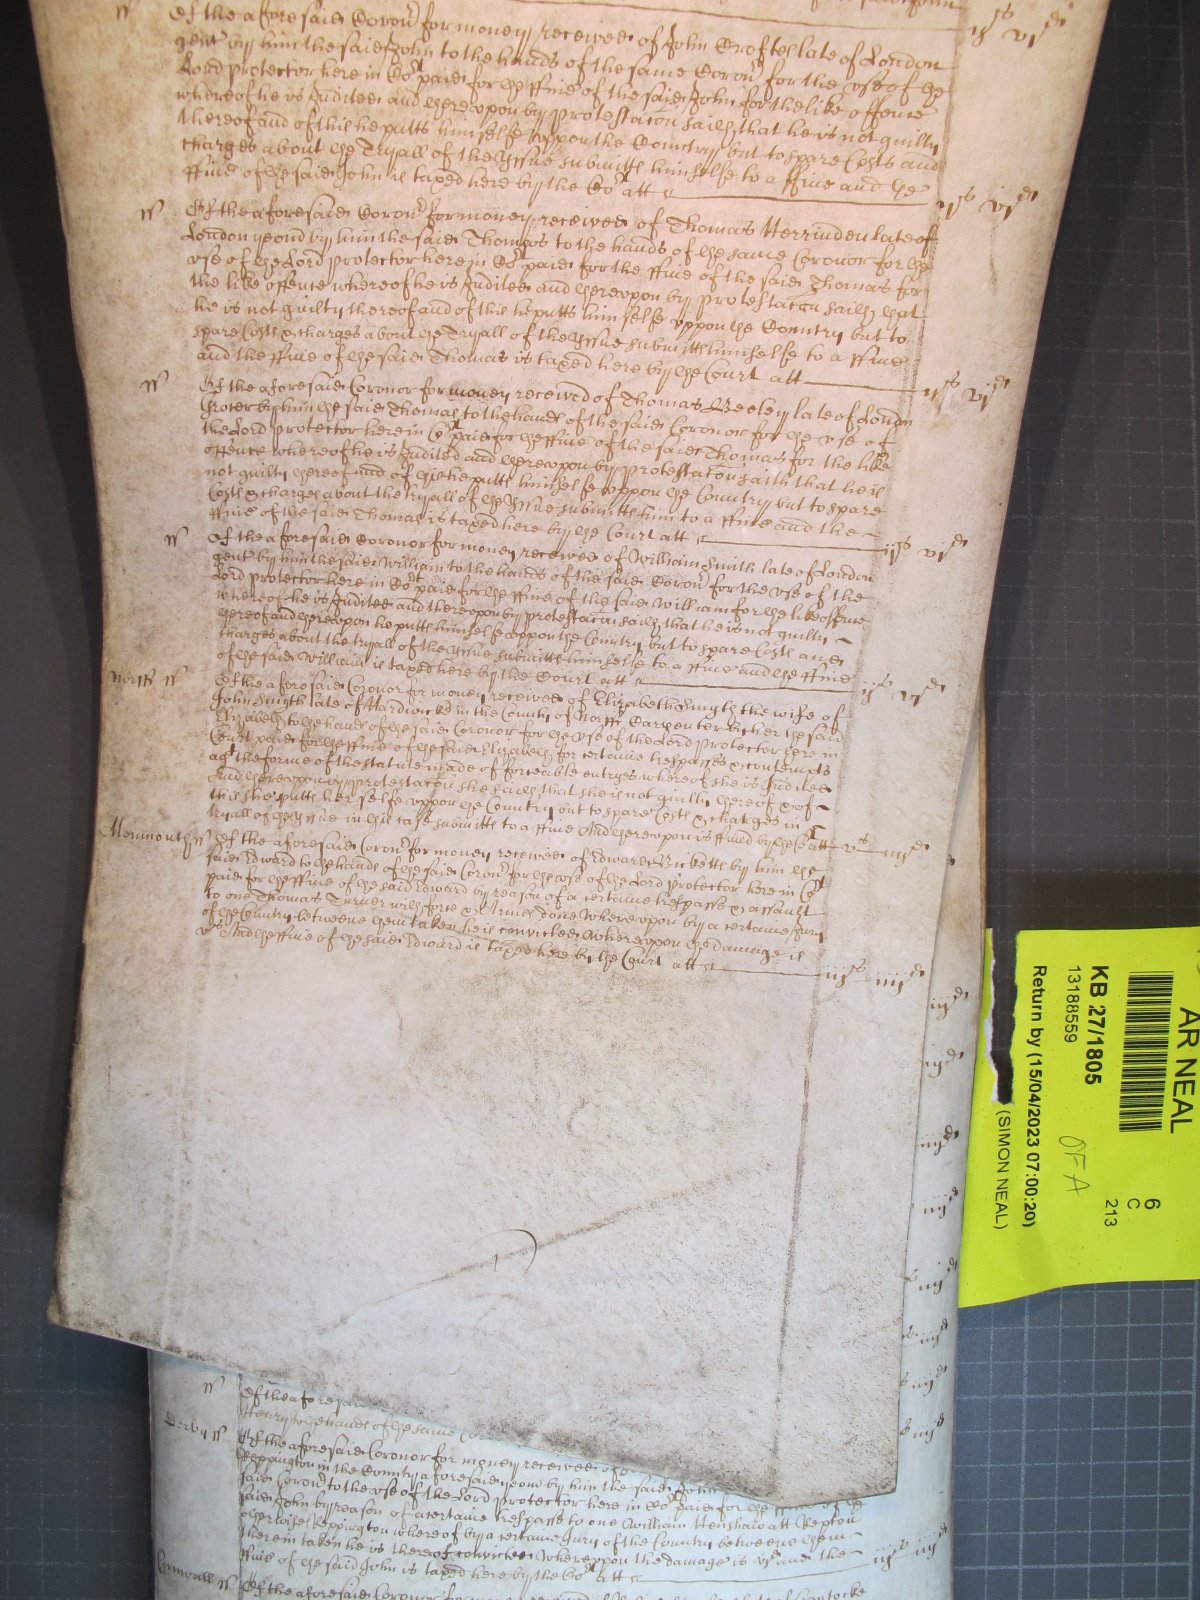 ss Of the aforesaid Coron'r for money received of John Croftes late of London ijs vjd
gent by him the said John to the hands of the same Coron'r for the vse of the
Lord Protector here in Co't paid for the ffine of the said John for the like offence
whereof he is Indited and thereupon by protestacon saith that he is not guilty
thereof and of this he putts himselfe vppon the Countrey but to spare Costs and
charges about the Tryall of the Yssue submitts himselfe to a ffine and the
ffine of the said John is taxed here by the Co't att ijs vjd
ss Of the aforesaid Coron'r for money received of Thomas Herrinden late of
London yeom by him the said Thomas to the hands of the same Coronor for the
vse of the Lord Protector here in Co't paid for the ffine of the said Thomas for
the like offence whereof he is Indited and thereupon by protestacon saith that
he is not guilty thereof and of this he putts himselfe vppon the Countrey but to
spare Costs & charges about the Tryall of the Yssue submitts himselfe to a ffine
and the ffine of the said Thomas is taxed here by the Court att ijs vjd
ss Of the aforesaid Coronor for money received of Thomas Beeley late of London
Grocer by him the said Thomas to the hands of the said Coronor for the vse of
the Lord Protector here in Co't paid for the ffine of the said Thomas for the like
offence whereof he is Indited and thereupon by protestacon saith that he is
not guilty thereof and of this he putts himselfe vppon the Countrey but to spare
Costs & charges about the tryall of the Yssue submitts him to a ffine and the
ffine of the said Thomas is taxed here by the Court att ijs vjd
ss Of the aforesaid Coronor for money received of William Smith late of London
gent by him the said William to the hands of the said Coron'r for the vse of the
Lord Protector here in Co't paid for the ffine of the said William for the like offence
whereof he is Indited and thereupon by protestacon saith that he is not guilty
thereof and thereupon he putts himselfe vppon the Countrey but to spare Costs and
charges about the tryall of the Yssue submitts himselfe to a ffine and the ffine
of the said William is taxed here by the Court att ijs vjd
ss Of the aforesaid Coronor for money received of Elizabeth Smyth the wife of
John Smyth late of Hardwicke in the County of Norff Carpenter by her the said
Elizabeth to the hands of the said Coronor for the vse of the Lord Protector here in
Court paid for the ffine of the said Elizabeth for certaine trespasses & contempts
ag't the forme of the statute made of forceable entryes whereof she is Indited
And thereupon by protestacon she saith that she is not guilty thereof & of
this she putts her selfe vppon the Countrey but to spare Costs & charges in
tryall of the Yssue in this case submitts to a ffine And thereupon is ffined by the Co't att vs iiijd
Monmouth ss Of the aforesaid Coron'r for money received of Edward Ricketts by him the
said Edward to the hands of the said Coron'r for the vse of the Lord Protector here in Co't
paid for the ffine of the said Edward by reason of a certaine trespasse & assault
to one Thomas Turner with force & Armes done Whereupon by a certaine Jury
of the Country betweene them taken he is convicted Whereupon the damage is
vs And the ffine of the said Edward is taxed here by the Court att iijs iiijd
iiijd
iiijd
iiijd
iiijd
iiijd
iiijd
iiijd
iiijd
AR NEAL
KB 27/1805
13188559
Return by (15/04/2023 07:00:20)
(SIMON NEAL)
6
C
213
OFA
ss Of the aforesaid
Henry to the hands of the same
Derby ss Of the aforesaid Coronor for money received of
Reppington in the County aforesaid yeom by him the said John
said Coron'r to the vse of the Lord Protector here in Co't paid for the ffine of the
said John by reason of a certaine trespasse to one William Henshaw att Repton
otherwise Reppington whereof by a certaine Jury of the Country betweene them
therein taken he is thereof convicted Whereupon the damage is vjd and the
ffine of the said John is taxed here by the Co't att iijs iiijd
Cornwall ss Of the aforesaid Coronor for money received